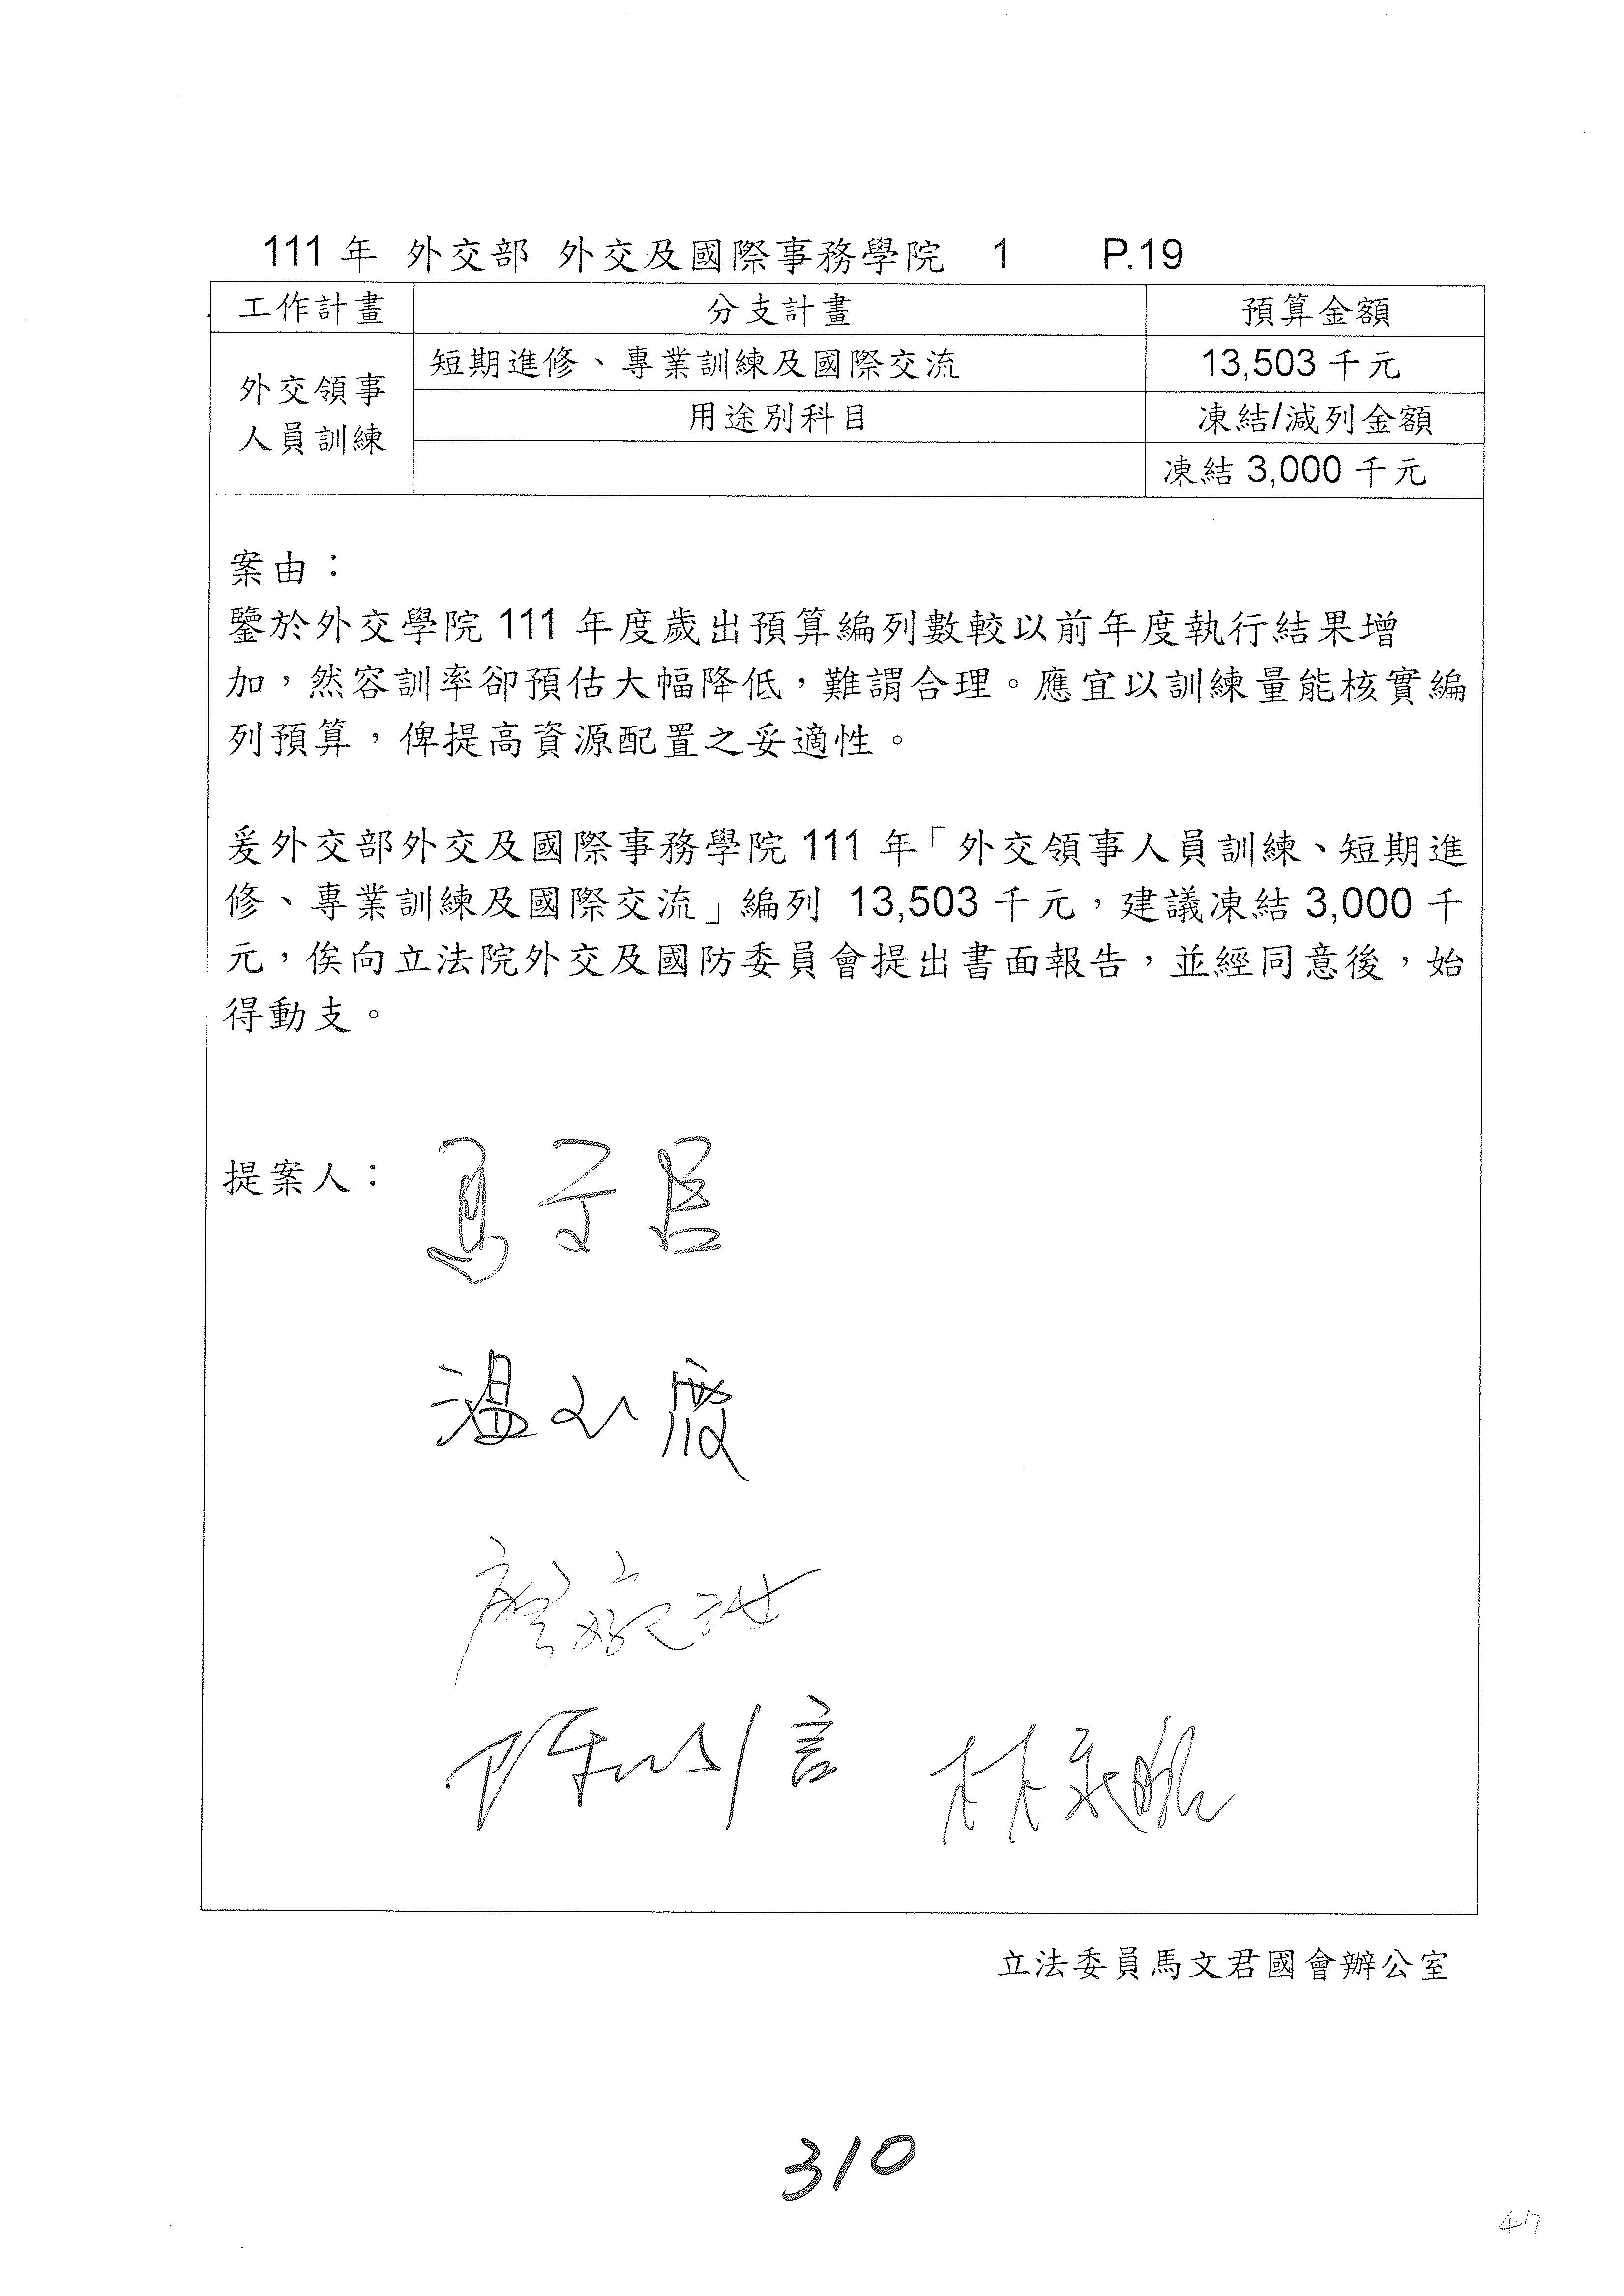 111 年 外交部 外交及國際事務學院 1 P.19
工作計畫 分支計畫 預算金額
外交領事人員訓練 短期進修、專業訓練及國際交流 13,503 千元
用途別科目 凍結/減列金額
凍結 3,000 千元
案由：
鑒於外交學院 111 年度歲出預算編列數較以前年度執行結果增
加，然容訓率卻預估大幅降低，難謂合理。應宜以訓練量能核實編
列預算，俾提高資源配置之妥適性。
爰外交部外交及國際事務學院 111 年「外交領事人員訓練、短期進
修、專業訓練及國際交流」編列 13,503 千元，建議凍結 3,000 千
元，俟向立法院外交及國防委員會提出書面報告，並經同意後，始
得動支。
提案人：
馬文君
溫玉霞
陳以信
立法委員馬文君國會辦公室
310
47